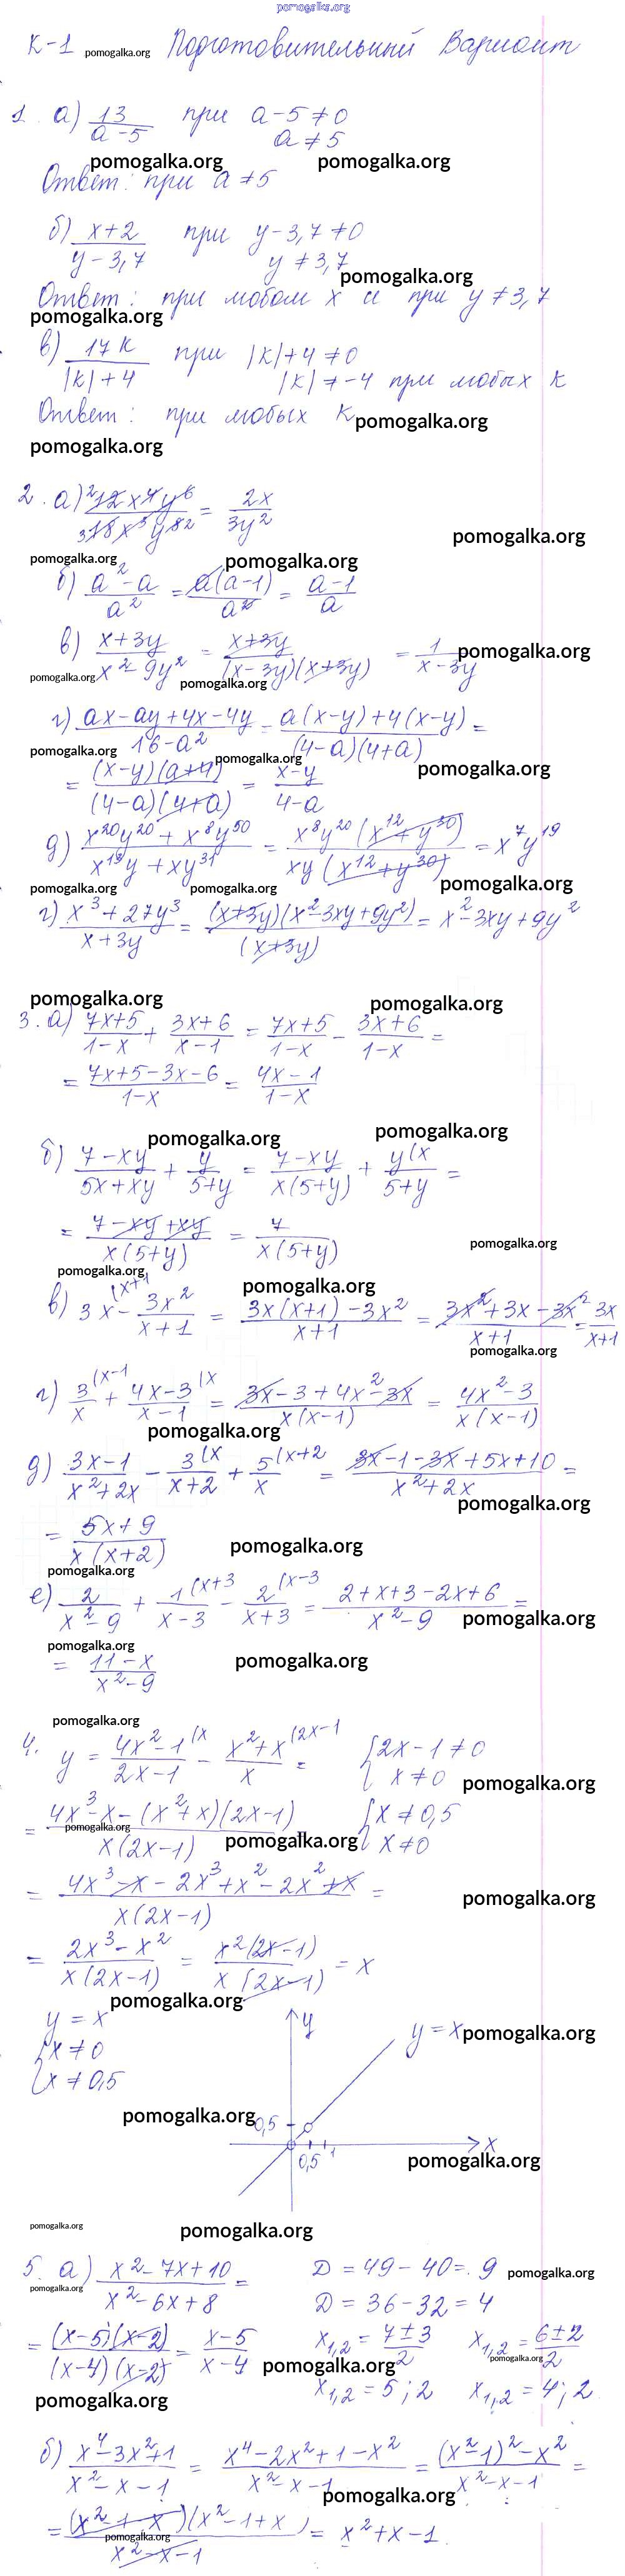 pomogalka.org
К-1 pomogalka.org Подготовительный Вариант
1. а) 13/(a-5) при a-5≠0
a≠5
pomogalka.org pomogalka.org
Ответ: при a≠5
б) (x+2)/(y-3,7) при y-3,7≠0
y≠3,7
pomogalka.org
Ответ: при любом x и при y≠3,7
pomogalka.org
в) 17k/(|k|+4) при |k|+4≠0
|k|≠-4 при любых k
Ответ: при любых k pomogalka.org
pomogalka.org
2. а) 12x⁴y⁶/18x³y⁸ = 2x/3y²
pomogalka.org
pomogalka.org pomogalka.org
б) (a²-a)/a² = a(a-1)/a² = (a-1)/a
в) (x+3y)/(x²-9y²) = (x+3y)/((x-3y)(x+3y)) = 1/(x-3y) pomogalka.org
pomogalka.org pomogalka.org
г) (ax-ay+4x-4y)/(16-a²) = (a(x-y)+4(x-y))/((4-a)(4+a)) =
pomogalka.org pomogalka.org pomogalka.org
= (x-y)(a+4)/((4-a)(4+a)) = (x-y)/(4-a)
д) (x²⁰y²⁰+x⁸y⁵⁰)/(x¹³y+xy³¹) = x⁸y²⁰(x¹²+y³⁰)/(xy(x¹²+y³⁰)) = x⁷y¹⁹
pomogalka.org pomogalka.org pomogalka.org
г) (x³+27y³)/(x+3y) = (x+3y)(x²-3xy+9y²)/(x+3y) = x²-3xy+9y²
pomogalka.org pomogalka.org
3. а) (7x+5)/(1-x) + (3x+6)/(x-1) = (7x+5)/(1-x) - (3x+6)/(1-x) =
= (7x+5-3x-6)/(1-x) = (4x-1)/(1-x)
pomogalka.org pomogalka.org
б) (7-xy)/(5x+xy) + y/(5+y) = (7-xy)/(x(5+y)) + y(x/(5+y) =
= (7-xy+xy)/(x(5+y)) = 7/(x(5+y))
pomogalka.org
pomogalka.org pomogalka.org
в) 3x(x+1 - 3x²/(x+1) = (3x(x+1)-3x²)/(x+1) = (3x²+3x-3x²)/(x+1) = 3x/(x+1)
pomogalka.org
г) 3(x-1/x + (4x-3(x)/(x-1) = (3x-3+4x²-3x)/(x(x-1)) = (4x²-3)/(x(x-1))
pomogalka.org
д) (3x-1)/(x²+2x) - 3(x/(x+2) + 5(x+2/x = (3x-1-3x+5x+10)/(x²+2x) =
pomogalka.org
= (5x+9)/(x(x+2)) pomogalka.org
pomogalka.org
е) 2/(x²-9) + 1(x+3/(x-3) - 2(x-3/(x+3) = (2+x+3-2x+6)/(x²-9) =
pomogalka.org
pomogalka.org
= (11-x)/(x²-9) pomogalka.org
pomogalka.org
4. y = (4x²-1(x)/(2x-1) - (x²+x(2x-1)/x = { 2x-1≠0
x≠0 pomogalka.org
= (4x³-x-(x²+x)(2x-1))/(x(2x-1)) = { x≠0,5
x≠0
pomogalka.org pomogalka.org
= (4x³-x-2x³+x²-2x²+x)/(x(2x-1)) =
pomogalka.org
= (2x³-x²)/(x(2x-1)) = x²(2x-1)/(x(2x-1)) = x
pomogalka.org
y = x
{ x≠0
x≠0,5
y
y=x pomogalka.org
pomogalka.org 0,5
x
0,5 1
pomogalka.org
pomogalka.org pomogalka.org
5. а) (x²-7x+10)/(x²-6x+8) = D = 49-40 = 9 pomogalka.org
pomogalka.org
D = 36-32 = 4
= (x-5)(x-2)/((x-4)(x-2)) = (x-5)/(x-4) x₁,₂ = (7±3)/2 x₁,₂ = (6±2)/2
pomogalka.org pomogalka.org
x₁,₂ = 5; 2 x₁,₂ = 4; 2
pomogalka.org
б) (x⁴-3x²+1)/(x²-x-1) = (x⁴-2x²+1-x²)/(x²-x-1) = ((x²-1)²-x²)/(x²-x-1) =
pomogalka.org
= (x²-1-x)(x²-1+x)/(x²-x-1) = x²+x-1
pomogalka.org